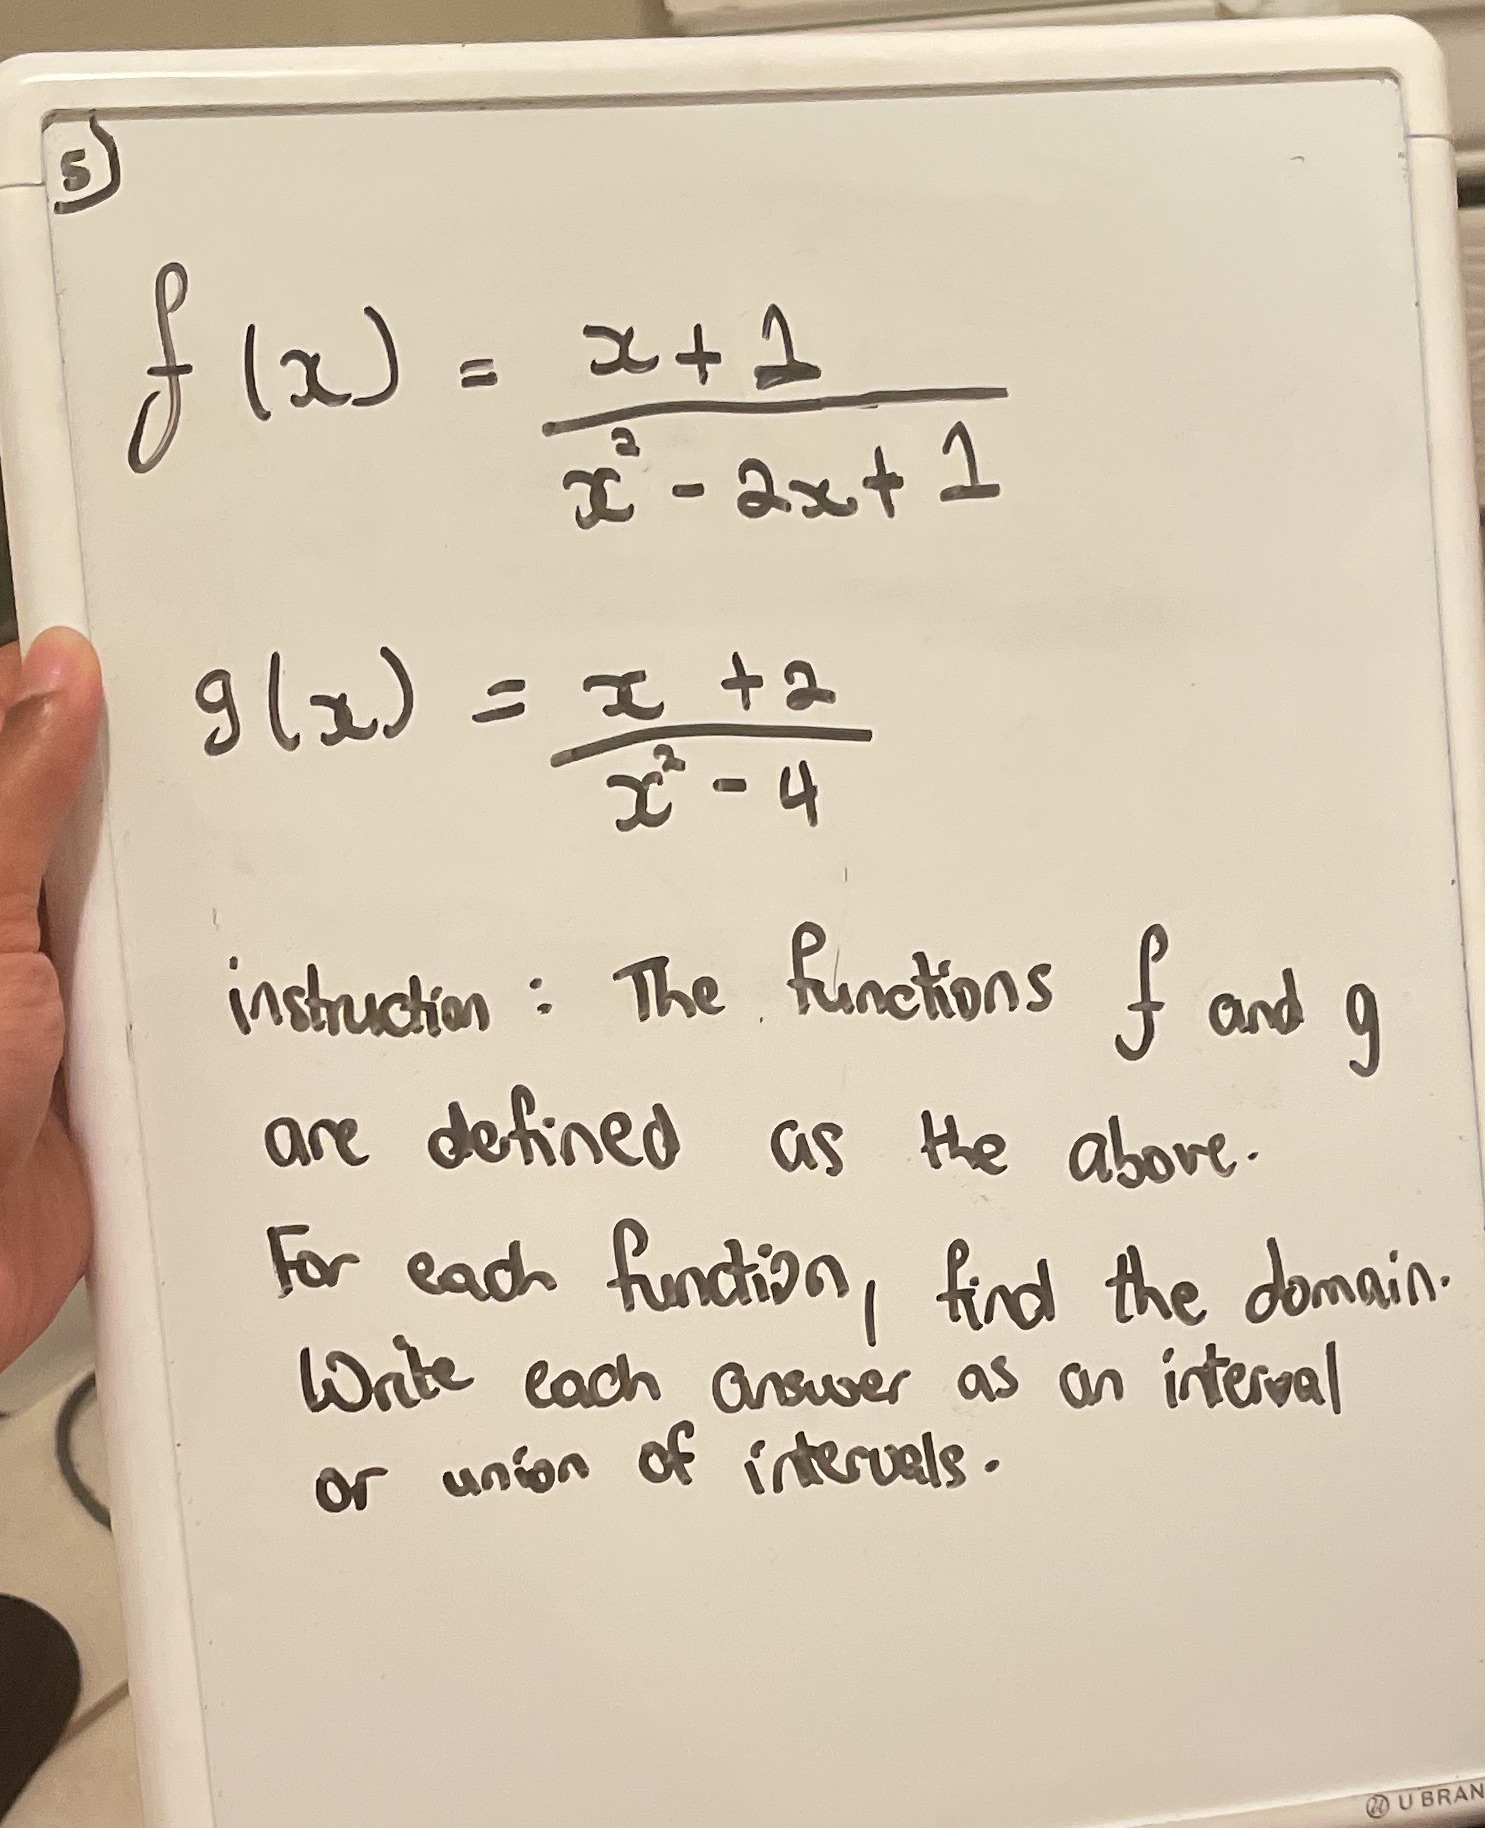 5)
f(x) = x+1
x² - 2x+1
g(x) = x +2
x² - 4
instruction : The functions f and g
are defined as the above.
For each function, find the domain.
Write each answer as an interval
or union of intervals.
U BRAN